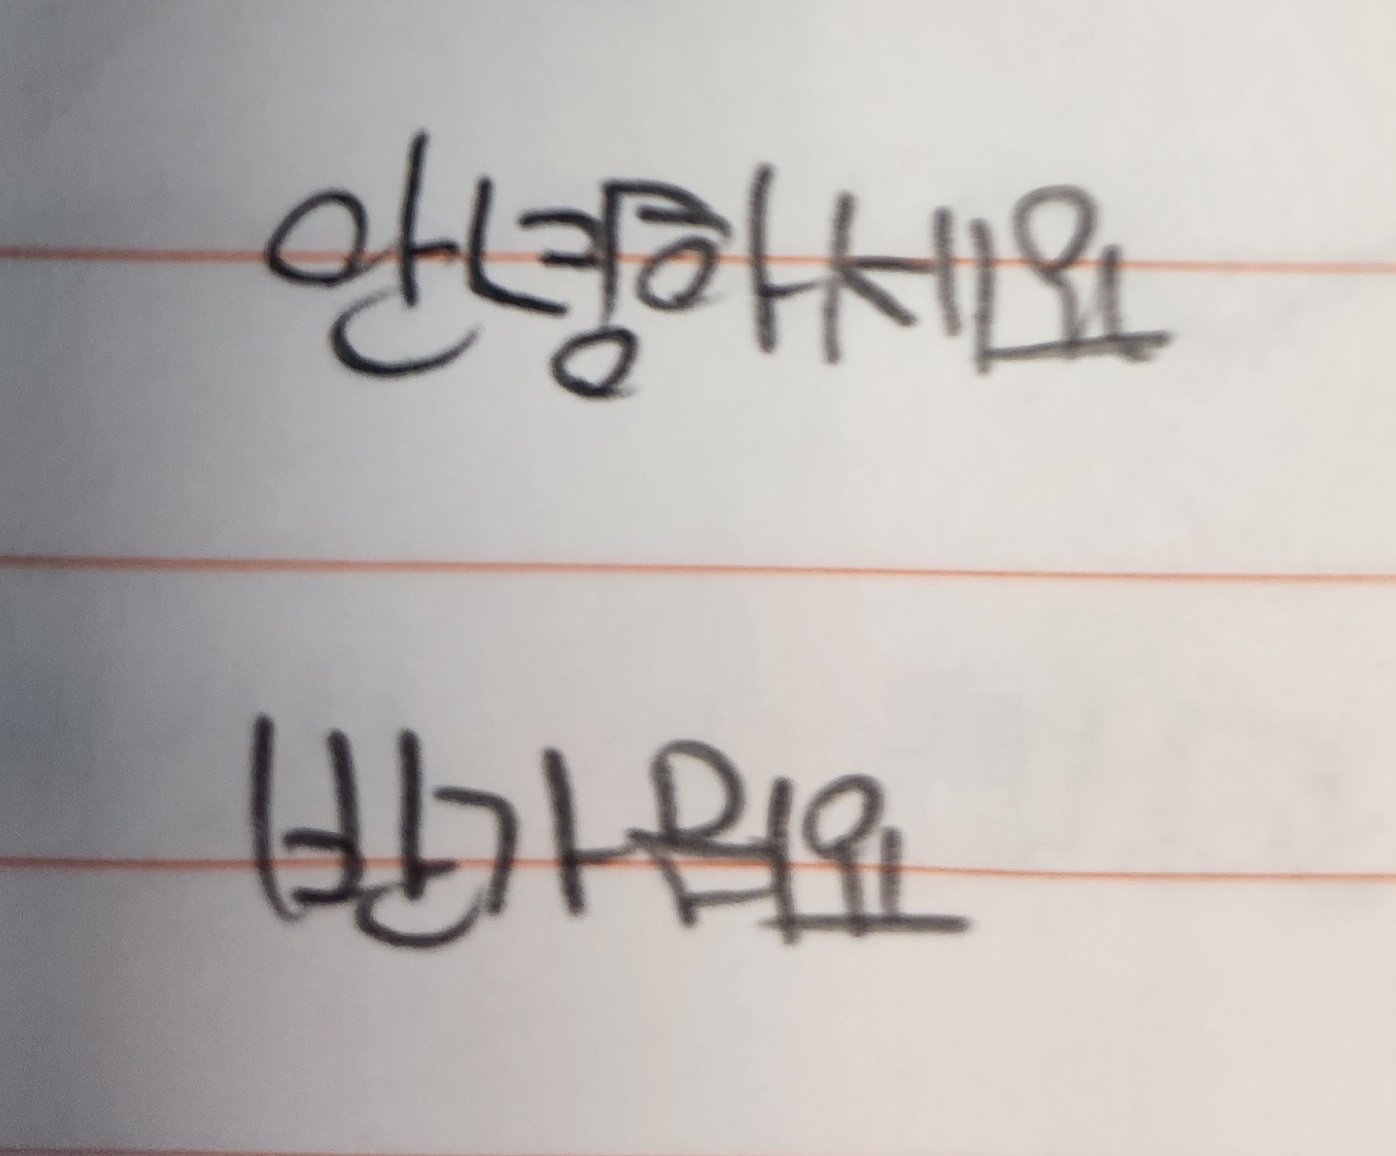 안녕하세요
반가워요